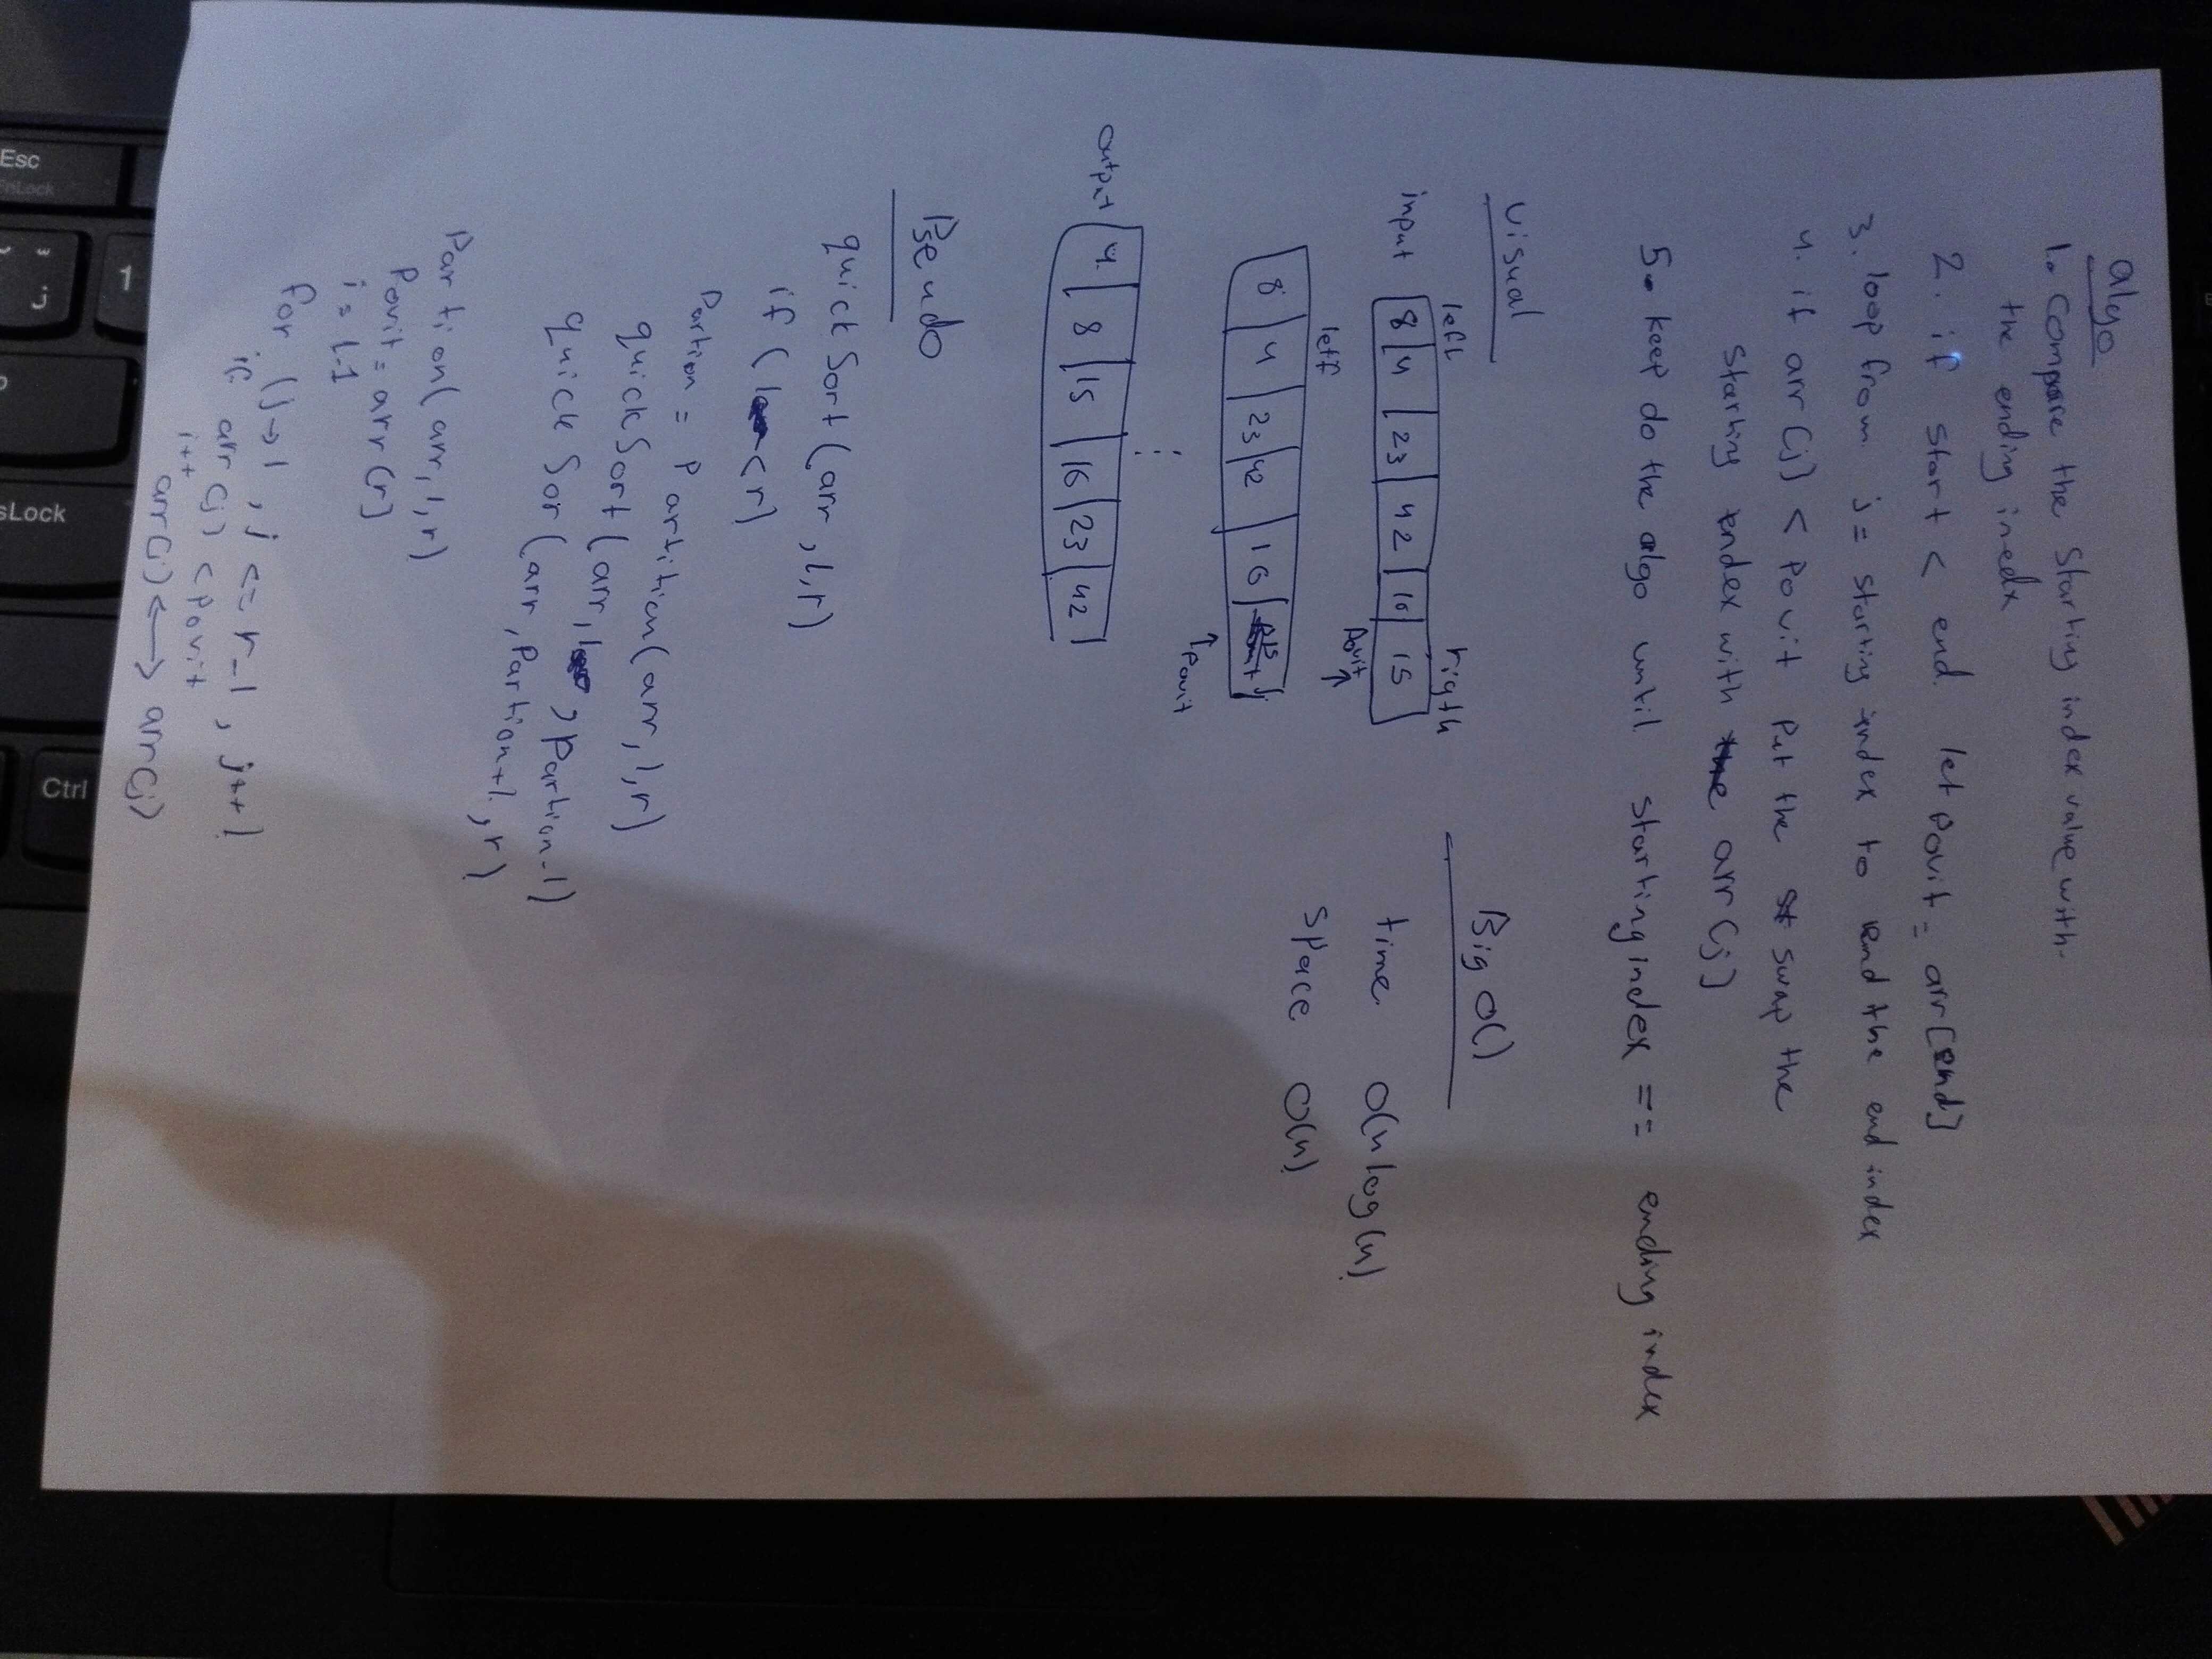 algo
1. Compare the Starting index value with
the ending inedx
2. if start < end let Povit = arr[end]
3. loop from j = starting index to end the end index
4. if arr[j] < Povit Put the st swap the
starting index with the arr[j]
5. keep do the algo until starting index == ending index
visual
left rigth
input 8 4 23 42 16 15
Povit ↑
left
8 4 23 42 16 15
↑ Povit
output 4 8 15 16 23 42
Big O()
time O(n log(n)
space O(n)
Pseudo
quickSort(arr, l, r)
if (l < r)
Partion = Partition(arr, l, r)
quickSort(arr, l, Partion-1)
quickSor(arr, Partion+1, r)
Partion(arr, l, r)
Povit = arr[r]
i = l-1
for (j → l, j <= r-1, j++)
if arr[j] < Povit
i++
arr[i] <—> arr[j]
Esc
FnLock
1
Ctrl
sLock